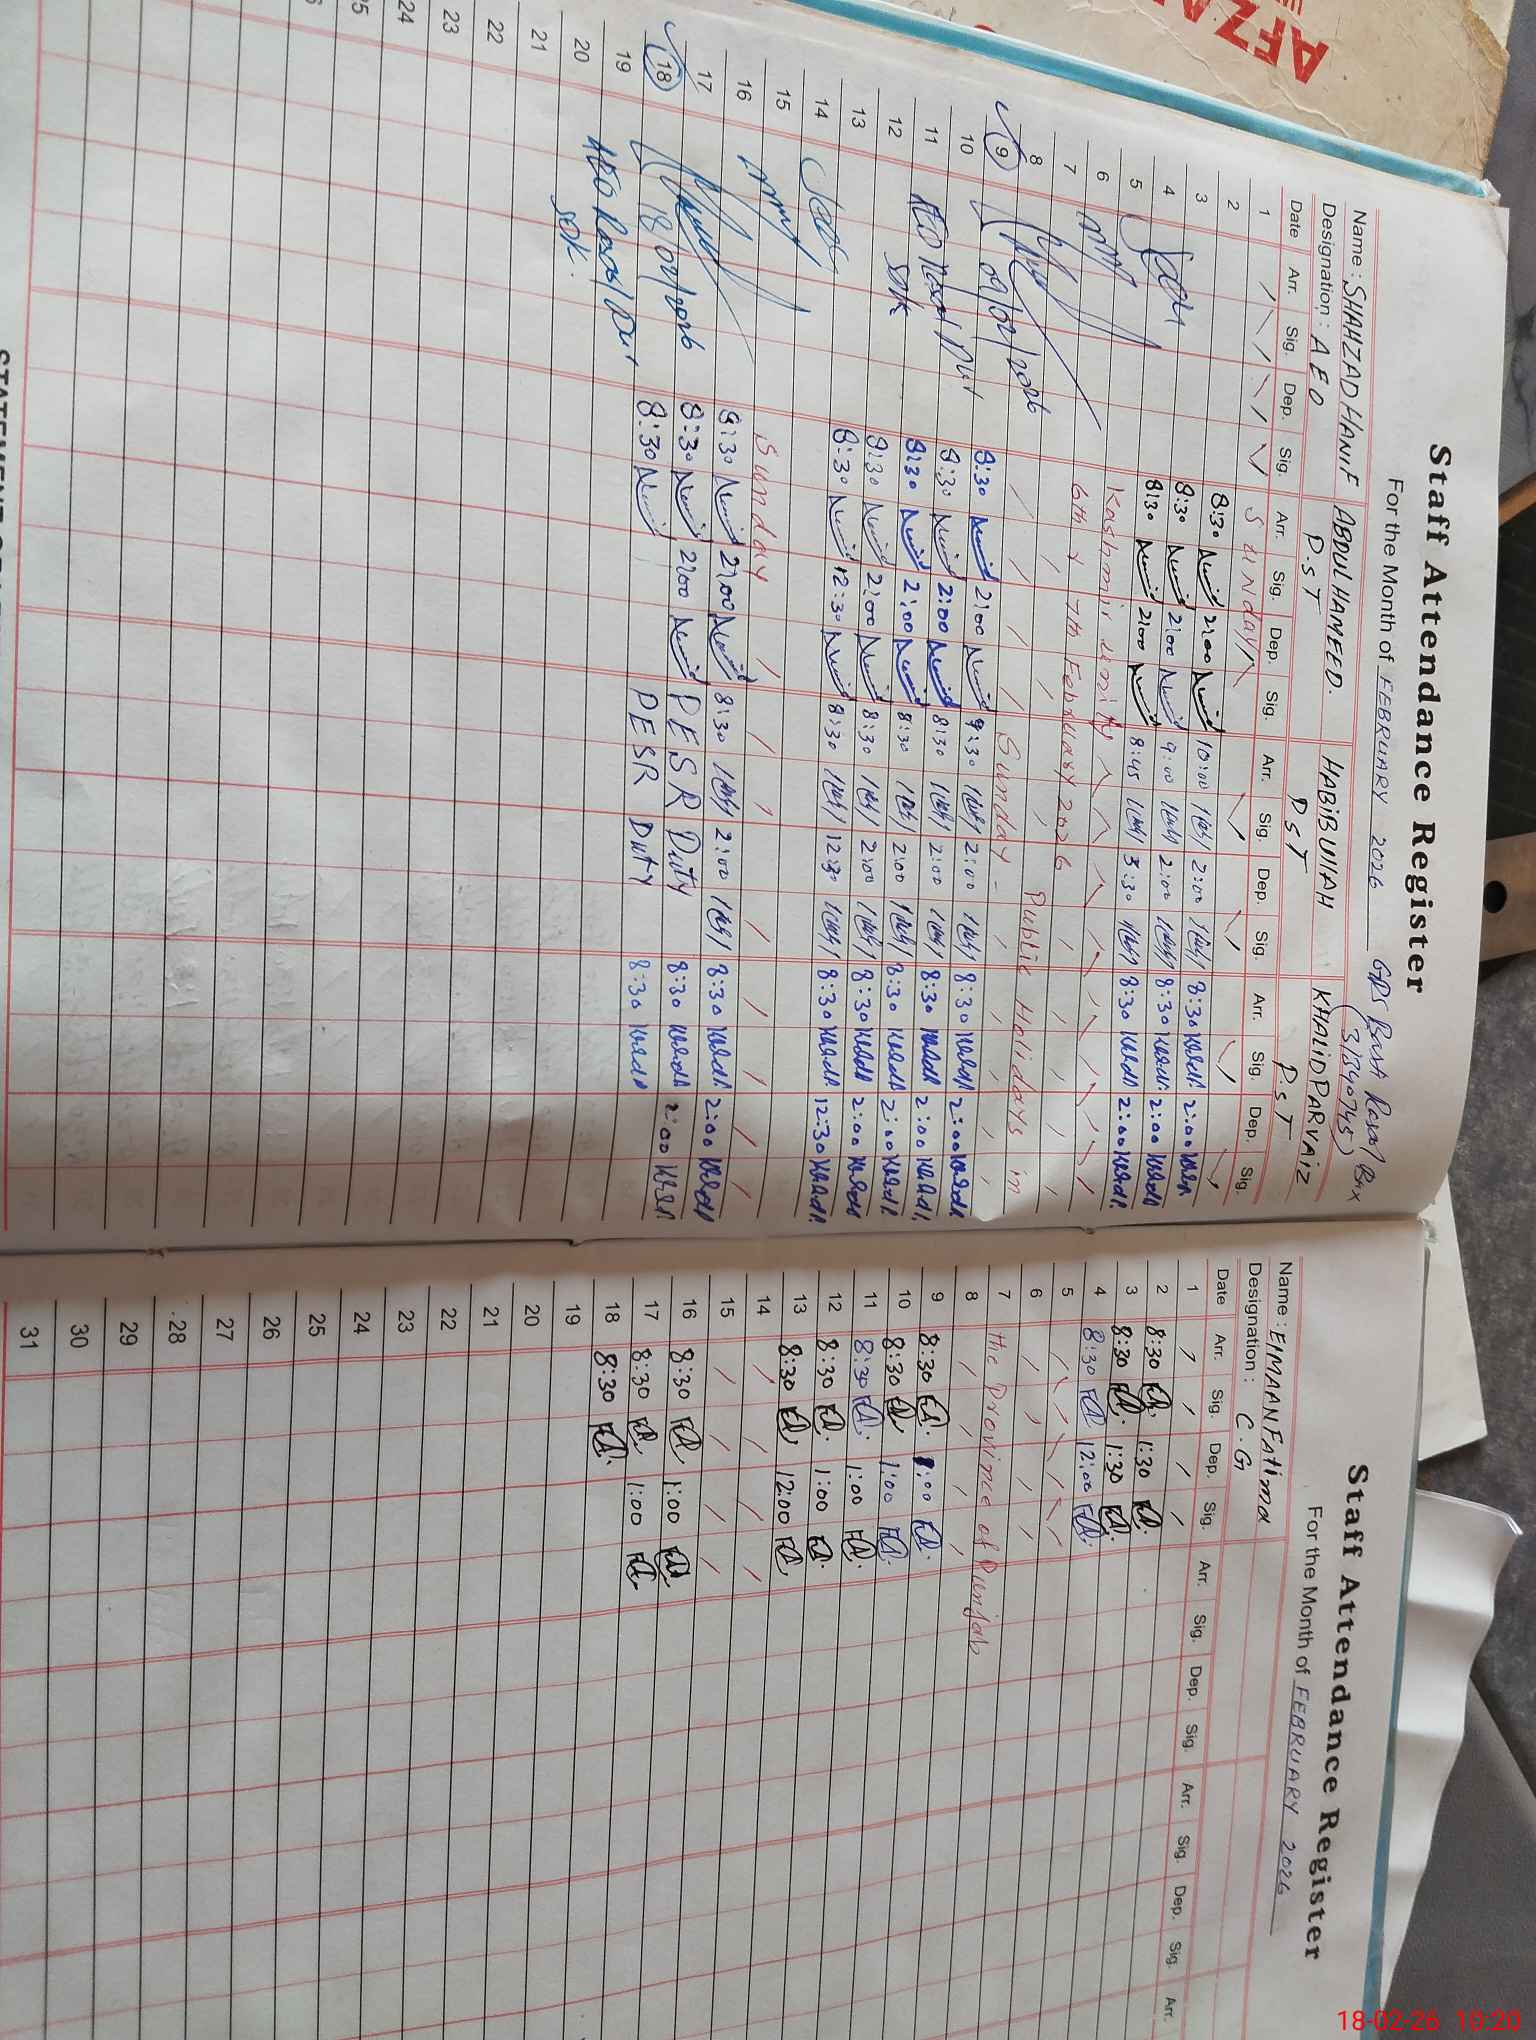 AFZA
Staff Attendance Register
For the Month of FEBRUARY 2026 GPS Basti Rasool Bux
(31340745)
Name : SHAHZAD HANIF ABDUL HAMEED. HABIBULLAH KHALID PARVAIZ
Designation : AEO P.ST DST P.ST
Date Arr. Sig. Dep. Sig. Arr. Sig. Dep. Sig. Arr. Sig. Dep. Sig. Arr. Sig. Dep. Sig.
1 Sunday
2 8:30 2:00 10:00 2:00 8:30 2:00
3 8:30 2:00 9:00 2:00 8:30 2:00
4 8:30 2:00 8:45 3:30 8:30 2:00
5 Kashmir unity
6 6th & 7th February 2026 Public Holidays in
7
8 Sunday -
9 8:30 2:00 9:30 2:00 8:30 2:00
09/02/2026
10 8:30 2:00 8:30 2:00 8:30 2:00
11 8:30 2:00 8:30 2:00 8:30 2:00
AEO
SDK
12 8:30 2:00 8:30 2:00 8:30 2:00
13 8:30 12:30 8:30 12:30 8:30 12:30
14
15 Sunday
16 8:30 2:00 8:30 2:00 8:30 2:00
17 8:30 2:00 PESR Duty 8:30 2:00
18 8:30 PESR Duty 8:30
18/02/2026
AEO
SDK.
19
20
21
22
23
24
Staff Attendance Register
For the Month of FEBRUARY 2026
Name : EIMAAN Fatima
Designation : C.G
Date Arr. Sig. Dep. Sig. Arr. Sig. Dep. Sig. Arr. Sig. Dep. Sig. Arr.
1
2 8:30 1:30
3 8:30 1:30
4 8:30 12:00
5
6
7 the Province of Punjab
8
9 8:30 1:00
10 8:30 1:00
11 8:30 1:00
12 8:30 1:00
13 8:30 12:00
14
15
16 8:30 1:00
17 8:30 1:00
18 8:30
19
20
21
22
23
24
25
26
27
28
29
30
31
18-02-26 10:20